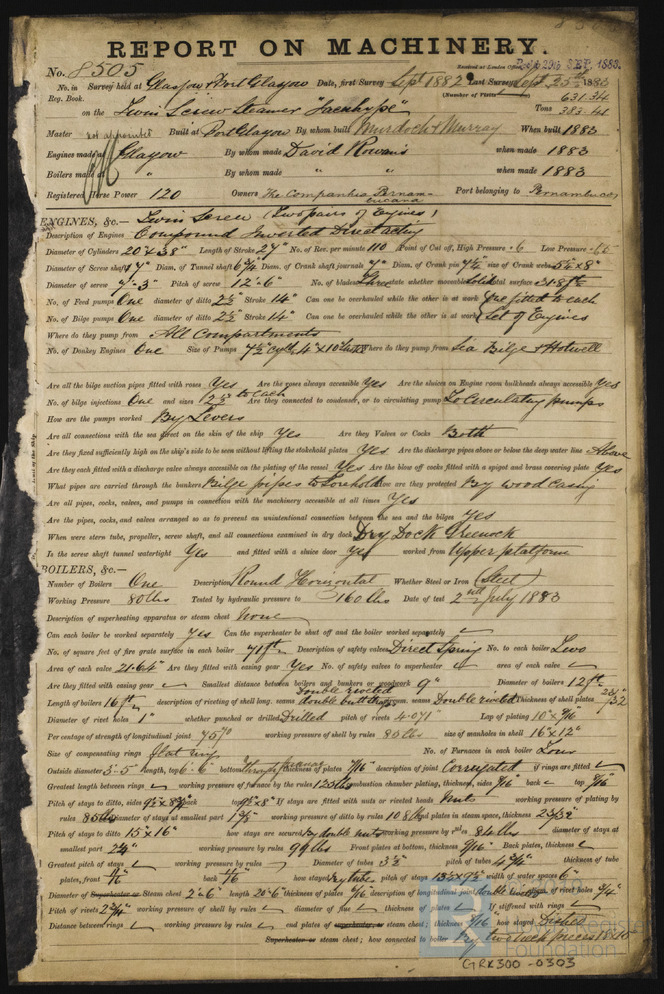 REPORT ON MACHINERY.
No. 8505 Received at London Office SEP. 1883
No. in Survey held at Glasgow & Port Glasgow Date, first Survey Sept 1882 Last Survey Sept 25th 1883
Reg. Book. (Number of Visits) 631.34
on the Twin Screw Steamer Tons 383.41
Master not appointed Built at Port Glasgow By whom built Murdoch & Murray When built 1883
Engines made at Glasgow By whom made David Rowan when made 1883
Boilers made at " By whom made " " when made 1883
Registered Horse Power 120 Owners The Companhia Pernambucana Port belonging to Pernambuco
ENGINES, &c.— Twin Screw (Two pairs of Engines)
Description of Engines Compound Inverted Direct acting
Diameter of Cylinders 20" & 38" Length of Stroke 27" No. of Rev. per minute 110 Point of Cut off, High Pressure .6 Low Pressure
Diameter of Screw shaft 7" Diam. of Tunnel shaft 6 3/4 Diam. of Crank shaft journals 7" Diam. of Crank pin 7 1/2 size of Crank webs 5 1/2 x 8"
Diameter of screw 7'-3" Pitch of screw 12'-6" No. of blades Three state whether moveable solid total surface
No. of Feed pumps One diameter of ditto 2 1/2 Stroke 14" Can one be overhauled while the other is at work One fitted to each
No. of Bilge pumps One diameter of ditto 2 1/2 Stroke 14" Can one be overhauled while the other is at work Set of Engines
Where do they pump from All Compartments
No. of Donkey Engines One Size of Pumps 7 1/2" cylr, 4" x 10" Where do they pump from Sea Bilge & Hotwell
Are all the bilge suction pipes fitted with roses Yes Are the roses always accessible Yes Are the sluices on Engine room bulkheads always accessible Yes
No. of bilge injections One and sizes 2 1/2 to each Are they connected to condenser, or to circulating pump To Circulating pumps
How are the pumps worked By Levers
Are all connections with the sea direct on the skin of the ship Yes Are they Valves or Cocks Both
Are they fixed sufficiently high on the ship's side to be seen without lifting the stokehold plates Yes Are the discharge pipes above or below the deep water line Above
Are they each fitted with a discharge valve always accessible on the plating of the vessel Yes Are the blow off cocks fitted with a spigot and brass covering plate Yes
What pipes are carried through the bunkers Bilge pipes to forehold How are they protected By wood casing
Are all pipes, cocks, valves, and pumps in connection with the machinery accessible at all times Yes
Are the pipes, cocks, and valves arranged so as to prevent an unintentional connection between the sea and the bilges Yes
When were stern tube, propeller, screw shaft, and all connections examined in dry dock Dry Dock Greenock
Is the screw shaft tunnel watertight Yes and fitted with a sluice door Yes worked from Upper platform
BOILERS, &c.—
Number of Boilers One Description Round Horizontal Whether Steel or Iron (Steel)
Working Pressure 80 lbs Tested by hydraulic pressure to 160 lbs Date of test 2nd July 1883
Description of superheating apparatus or steam chest None
Can each boiler be worked separately Yes Can the superheater be shut off and the boiler worked separately
No. of square feet of fire grate surface in each boiler 71 ft Description of safety valves Direct Spring No. to each boiler Two
Area of each valve 21.64" Are they fitted with easing gear Yes No. of safety valves to superheater area of each valve
Are they fitted with easing gear Smallest distance between boilers or woodwork 9" Diameter of boilers 12 ft
Length of boilers 16 ft description of riveting of shell long. seams double riveted double butt straps circum. seams Double riveted Thickness of shell plates
Diameter of rivet holes 1" whether punched or drilled Drilled pitch of rivets 4.071" Lap of plating 10 x 9/16
Per centage of strength of longitudinal joint 75% working pressure of shell by rules 80 lbs size of manholes in shell 16" x 12"
Size of compensating rings flat ring No. of Furnaces in each boiler Four
Outside diameter 3-5 length, top 6'-6" bottom thickness of plates 7/16 description of joint Corrugated if rings are fitted
Greatest length between rings working pressure of furnace by the rules 125 lbs combustion chamber plating, thickness, sides 9/16" back top 9/16"
Pitch of stays to ditto, sides back top If stays are fitted with nuts or riveted heads Nuts working pressure of plating by
rules 85 lbs Diameter of stays at smallest part working pressure of ditto by rules end plates in steam space, thickness 25/32"
Pitch of stays to ditto 15" x 16" how stays are secured By double nuts working pressure by rules 84 lbs diameter of stays at
smallest part working pressure by rules 99 lbs Front plates at bottom, thickness 9/16" Back plates, thickness
Greatest pitch of stays working pressure by rules Diameter of tubes 3 1/2 pitch of tubes 4 3/4" thickness of tube
plates, front back how stayed pitch of stays width of water spaces 6"
Diameter of Superheater or Steam chest 2'-6" length 20'-6" thickness of plates description of longitudinal joint double diam. of rivet holes 3/4"
Pitch of rivets working pressure of shell by rules diameter of flue thickness of plates If stiffened with rings
Distance between rings working pressure by rules end plates of superheater or steam chest; thickness 7/16" how stayed Dished
Superheater or steam chest; how connected to boiler By two neck pieces
GRK300-0303